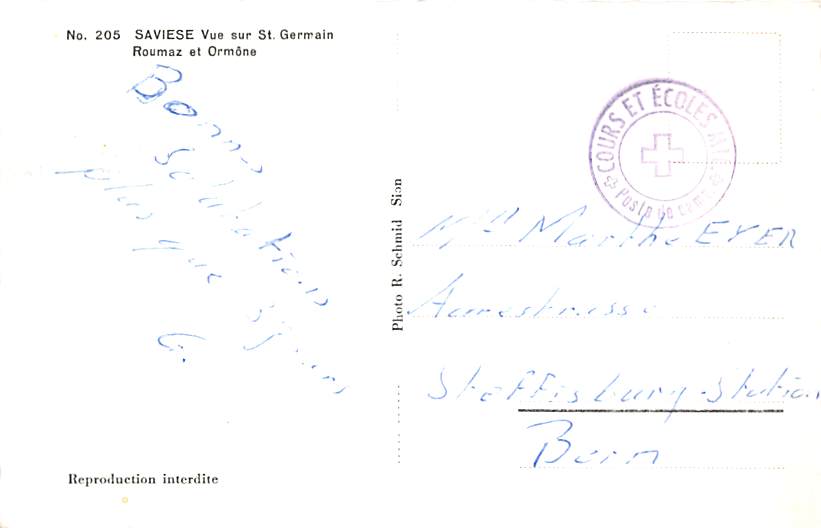 No. 205 SAVIESE Vue sur St. Germain
Roumaz et Ormône
Bonnes
Salutations
G.
Reproduction interdite
Photo R. Schmid Sion
COURS ET ÉCOLES MIL.
Poste de camp
Mlle Marthe EYER
Aarestrasse
Steffisburg-Station
Bern